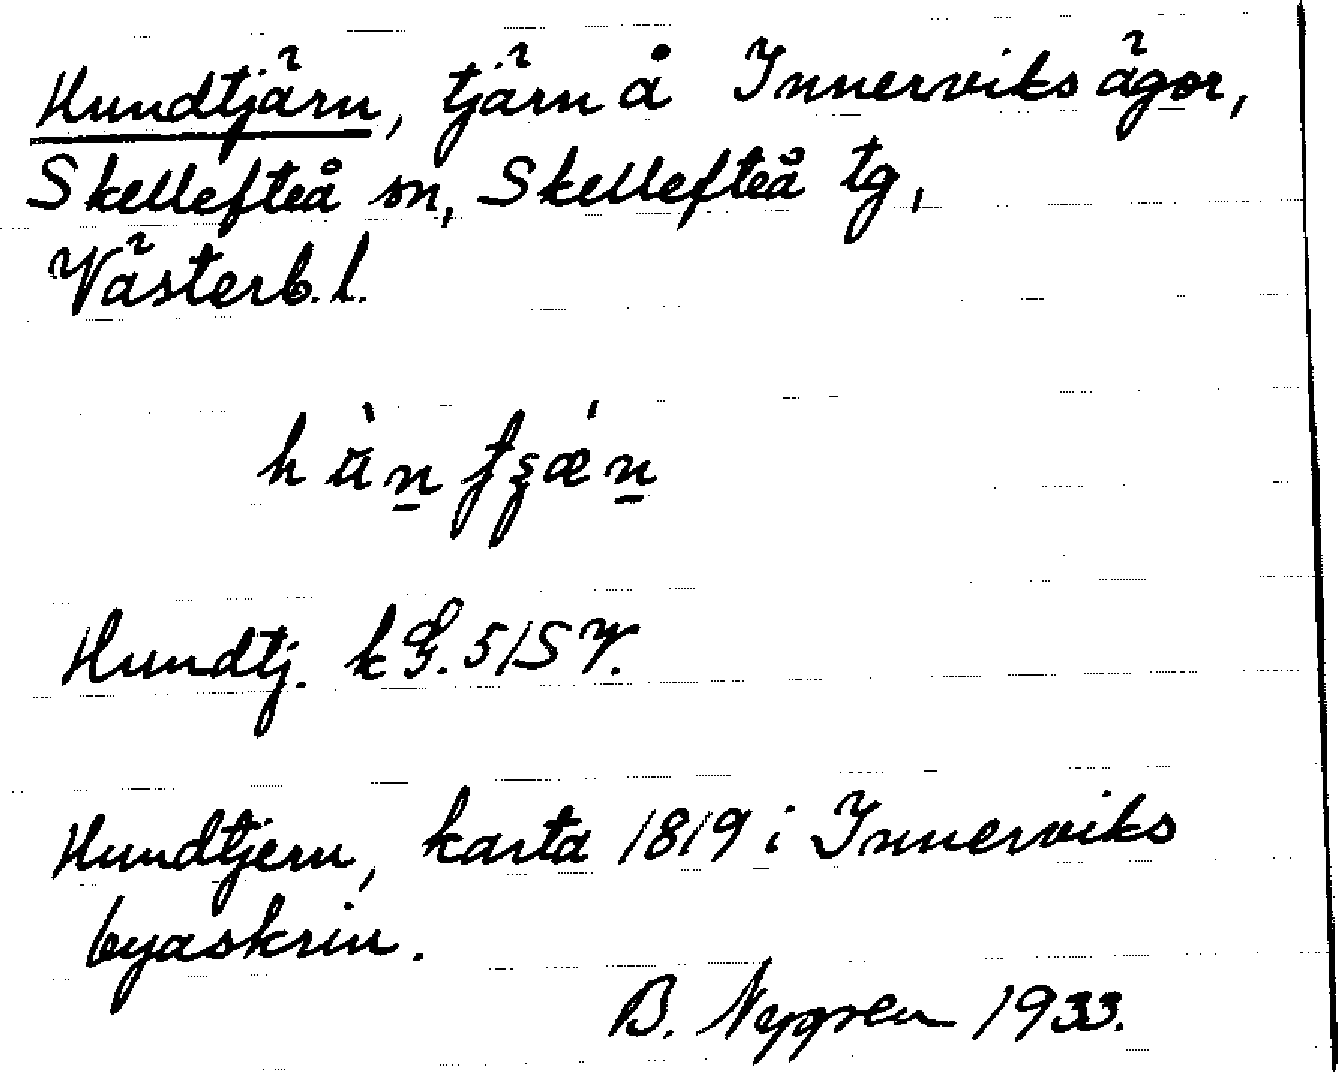 Hundtjärn, tjärn å Innerviks ägor,
Skellefteå sn, Skellefteå tg,
Västerb. l.
Hundtj. k G. 51 S V.
Hundtjern, karta 1819 i Innerviks
byaskrin.
B. Nygren 1933.